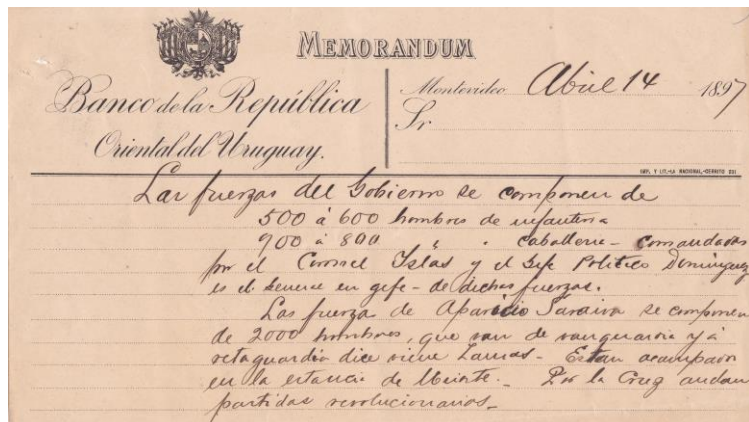 MEMORANDUM
Banco de la República
Oriental del Uruguay.
Montevideo Abril 14 1897
Sr.
IMP. Y LIT. LA NACIONAL, CERRITO
Las fuerzas del Gobierno se componen de
500 á 600 hombres de infanteria
900 á 800 " " caballeria - comandadas
por el Coronel Islas y el Gefe Politico Dominguez
es el General en gefe - de dichas fuerzas.
Las fuerza de Aparicio Saraiva se componen
de 2000 hombres, que van de vanguardia y á
retaguardia dice viene Lamas - Estan acampados
en la estancia de . Por la Cruz andan
partidas revolucionarias -